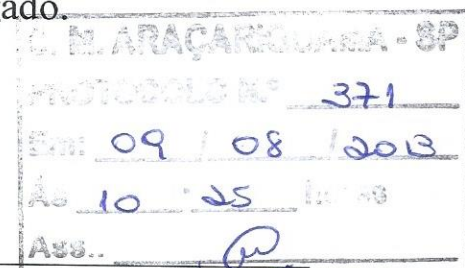 ado.
C. M. ARAÇARIGUAMA - SP
PROTOCOLO Nº 371
Em: 09 / 08 / 2013
Às 10 : 25 horas
Ass.: